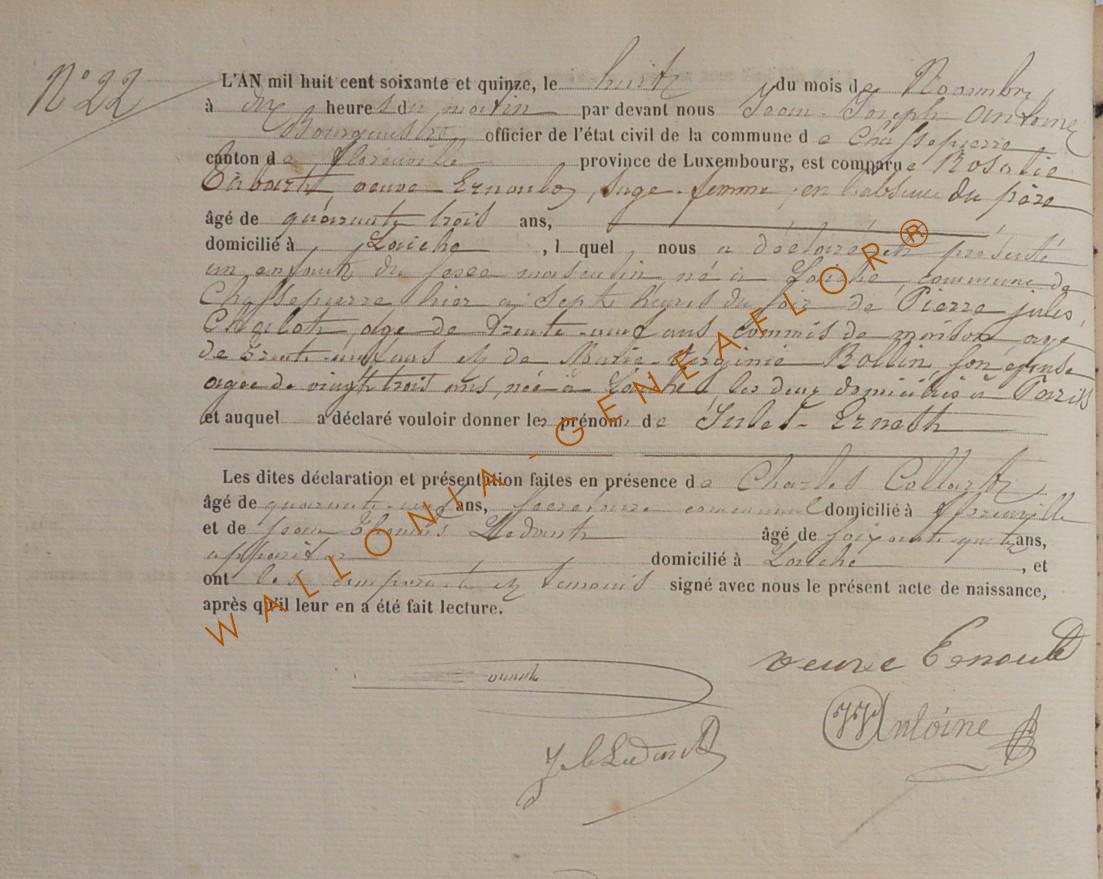 N° 22
L'AN mil huit cent soixante et quinze, le huit du mois de Novembre
à dix heures du matin par devant nous Jean Joseph Antoine
Bourgmestre officier de l'état civil de la commune de Chassepierre
canton de Florenville province de Luxembourg, est comparue Rosalie
veuve Ernould, sage-femme, en l'absence du père
âgé de quarante trois ans,
domicilié à Laiche, l quel nous a déclaré et présenté
un enfant du sexe masculin, né à Laiche, commune de
Chassepierre hier à sept heures du soir de Pierre jules,
âgé de trente neuf ans commis de maison agé
de trente neuf ans et de Marie Virginie Rollin son épouse
agée de vingt trois ans, née à Laiche, les deux domiciliés à Paris
et auquel a déclaré vouloir donner les prénoms de Jules Ernest
Les dites déclaration et présentation faites en présence de Charles Collart
âgé de quarante ans, Secrétaire communal domicilié à
et de Jean Ledant âgé de soixante quatre ans,
appariteur domicilié à Laiche, et
ont les comparant et temoins signé avec nous le présent acte de naissance,
après qu'il leur en a été fait lecture.
veuve Ernould
JJ Antoine
WALLONIA-GENEAFLOR®